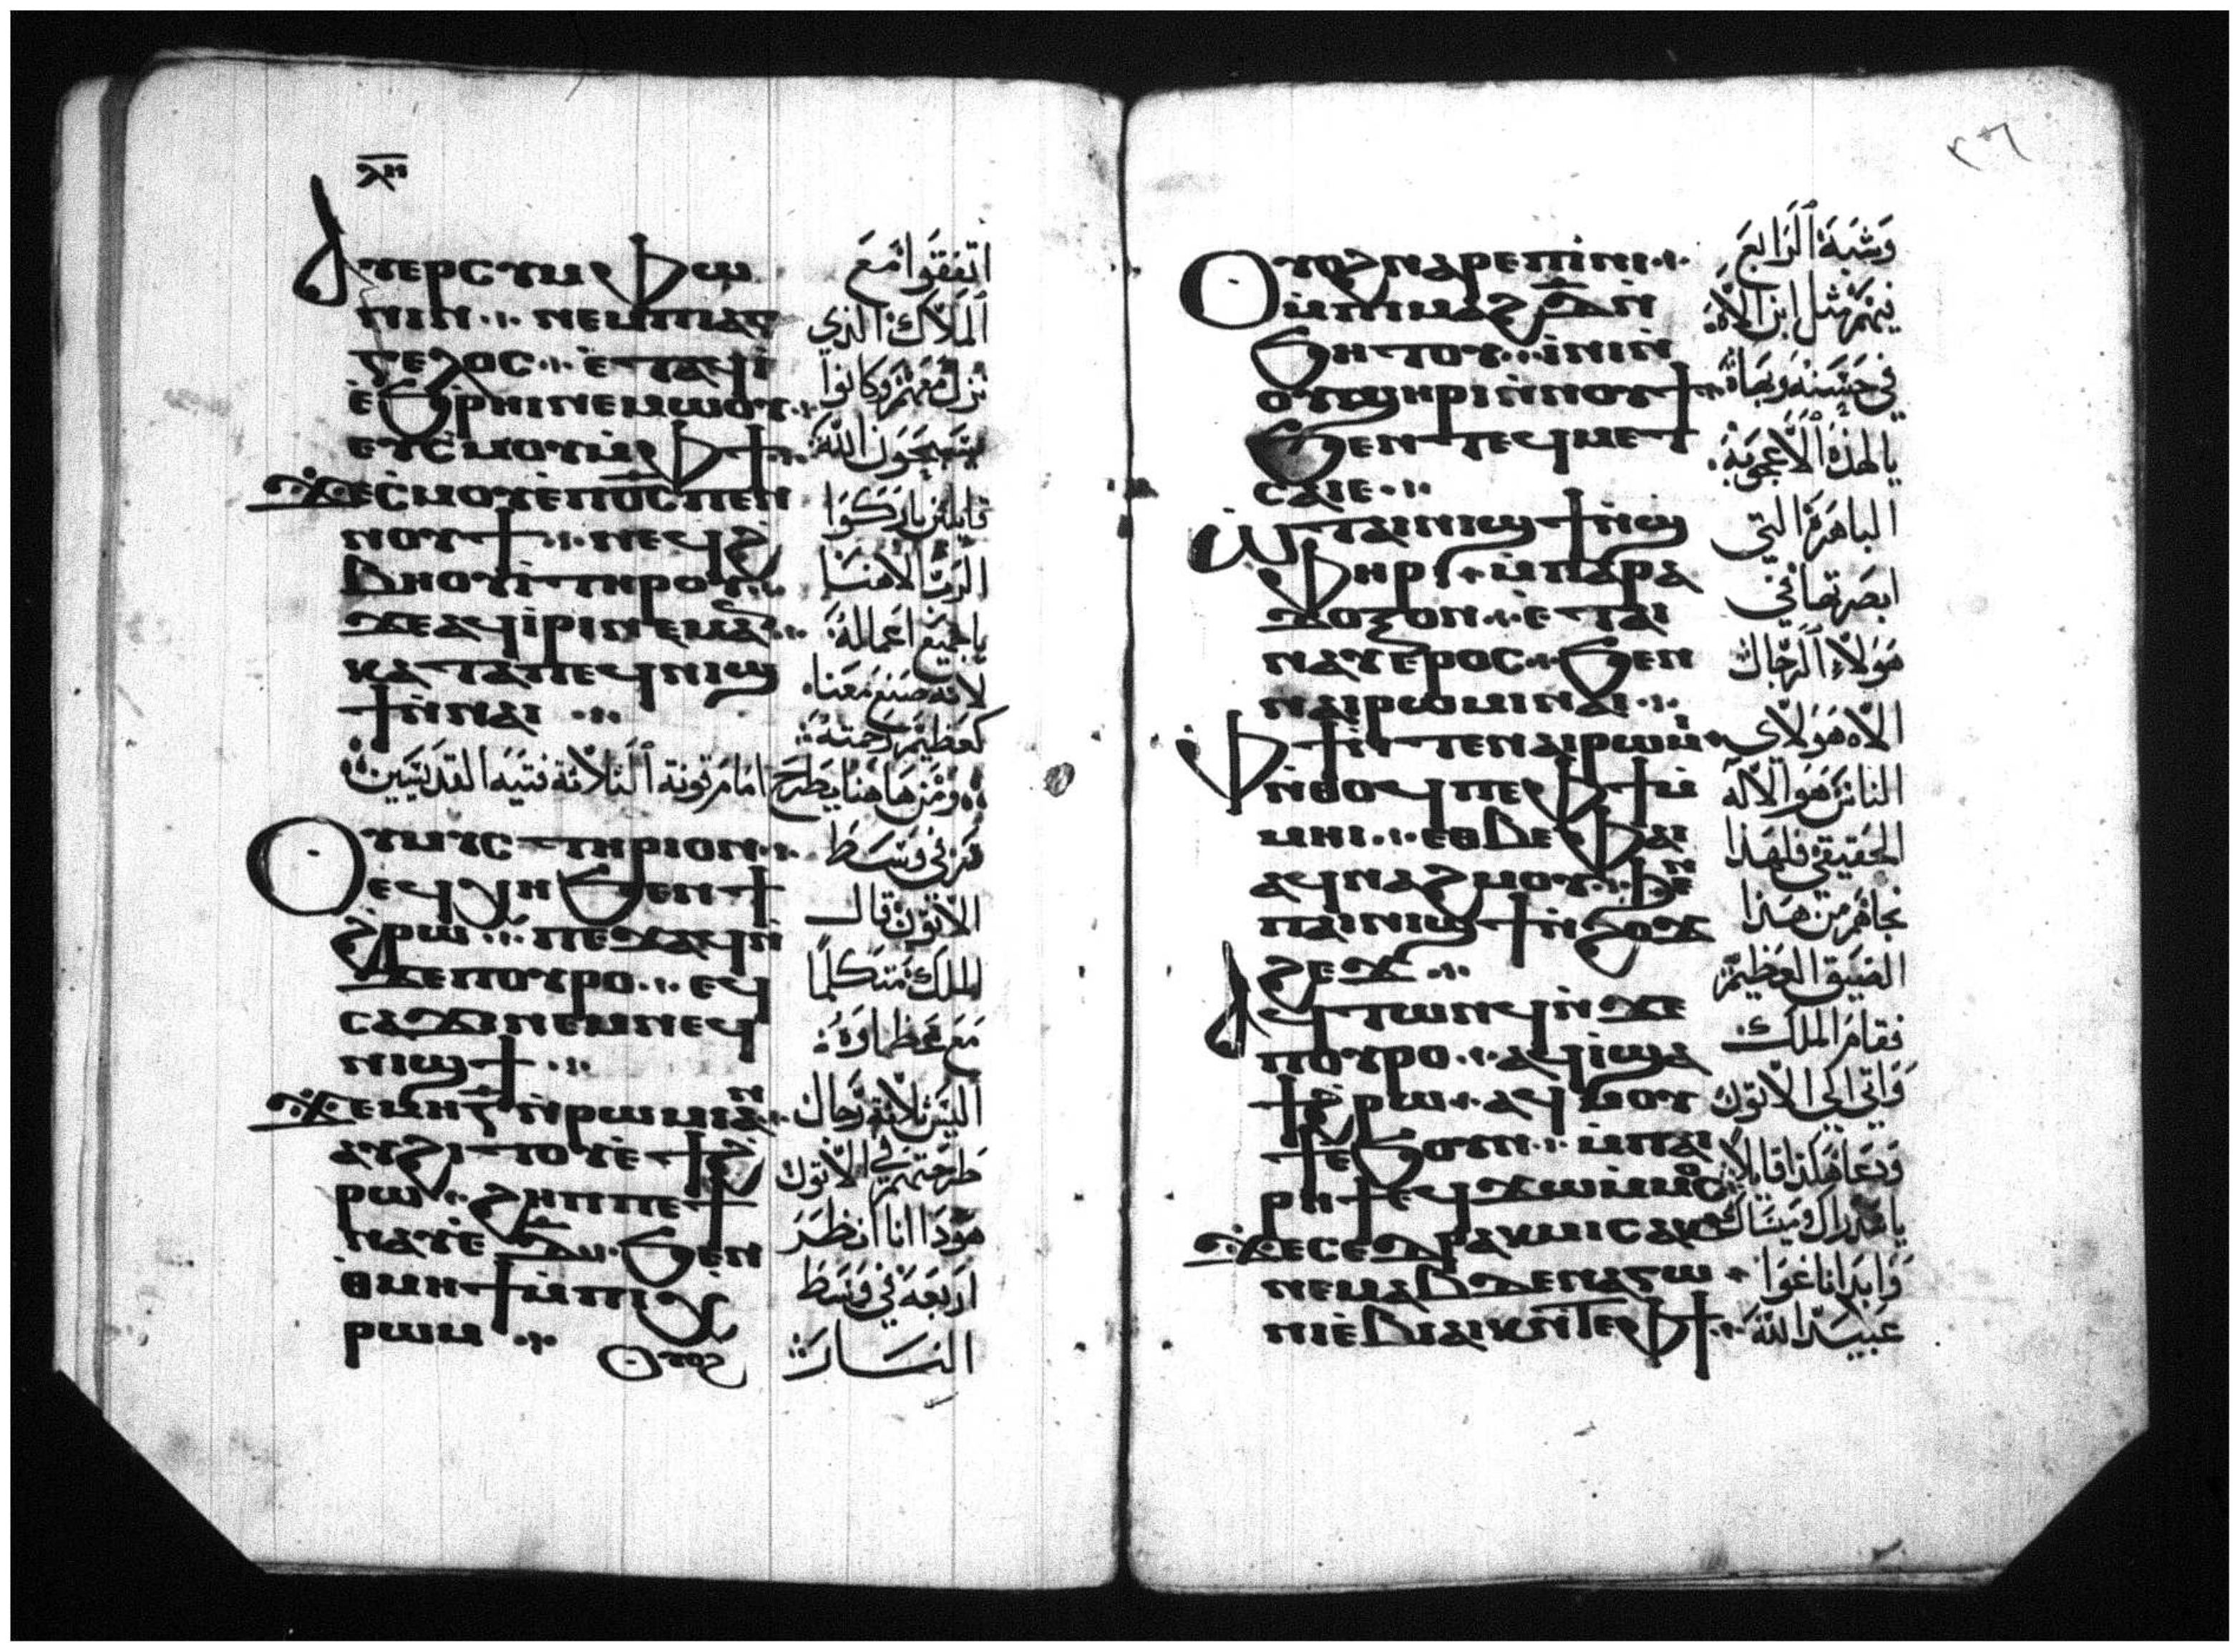 ⲗⲏ
ⲁⲩⲉⲣⲥⲩⲙⲫⲱ
ⲛⲓⲛ ⲛⲉⲙⲡⲓⲁⲅ
ⲅⲉⲗⲟⲥ ⲉ̀ⲧⲁϥⲓ̀
ⲉ̀ϧⲣⲏⲓ ⲛⲉⲙⲱⲟⲩ
ⲉⲩⲥ̀ⲙⲟⲩ ⲙ̀ⲫϯ
ϫⲉⲥ̀ⲙⲟⲩ ⲉ̀ⲡⲟ̅ⲥ̅ ⲡⲉⲛ
ⲛⲟⲩϯ ⲛⲉϥϩ̀
ⲃⲏⲟⲩⲓ̀ ⲧⲏⲣⲟⲩ
ϫⲉ ⲁϥⲓ̀ⲣⲓ ⲛⲉⲙⲁⲛ
ⲕⲁⲧⲁ ⲡⲉϥⲛⲓϣ
ϯ ⲛ̀ⲛⲁⲓ
اتفقوا مع
الملاك الذي
نزل معهم وكانوا
يسبحون الله
قايلين باركوا
الرب الاهنا
يا جميع اعماله
لانه صنع معنا
كعظيم رحمته
ومن هاهنا يطرح امام قونة الثلاثة فتيه القديسين
ⲟⲩⲙⲩⲥⲧⲏⲣⲓⲟⲛ
ⲉϥⲭⲏ ϧⲉⲛ ϯ
ϩ̀ⲣⲱ ⲡⲉϫⲁϥ ⲛ̀
ϫⲉ ⲡⲟⲩⲣⲟ ⲉϥ
ⲥⲁϫⲓ ⲛⲉⲙ ⲛⲉϥ
ⲛⲓϣϯ
ϫⲉ ⲙⲏ ⲅ̅ ⲛ̀ⲣⲱⲙⲓ ⲁⲛ
ⲁⲩϩⲓⲧⲟⲩ ⲉ̀ϯϩ̀
ⲣⲱ ϩⲏⲡⲡⲉ ϯ
ⲛⲁⲩ ⲉ̀ⲇ̅ ϧⲉⲛ
ⲑⲙⲏϯ ⲙ̀ⲡⲓⲭ̀
ⲣⲱⲙ
ⲟⲩⲟϩ
سر في وسط
الاتون قال
الملك متكلما
مع عظماوه
اليس ثلاثة رجال
طرحتهم في الاتون
هوذا انا انظر
اربعه في وسط
النار
ⲟⲩⲟϩ ⲛⲁⲣⲉ ⲡⲓⲛⲓ
ⲙ̀ⲡⲓⲙⲁϩⲇ̅ ⲛ̀
ϧⲏⲧⲟⲩ ⲓ̀ⲛⲓ ⲛ̀
ⲟⲩϣⲏⲣⲓ ⲛ̀ⲛⲟⲩϯ
ϧⲉⲛ ⲧⲉϥⲙⲉⲧ
ⲥⲁⲓⲉ
ⲱ ⲧⲁⲓⲛⲓϣϯ ⲛ̀ϣ
ⲫⲏⲣⲓ ⲙ̀ⲡⲁⲣⲁ
ⲇⲟⲝⲟⲛ ⲉ̀ⲧⲁⲓ
ⲛⲁⲩ ⲉ̀ⲣⲟⲥ ϧⲉⲛ
ⲛⲁⲓⲣⲱⲙⲓ ⲛⲁⲓ
ⲫϯ ⲛ̀ⲧⲉ ⲛⲁⲓⲣⲱⲙⲓ
ⲛ̀ⲑⲟϥ ⲡⲉ ⲫϯ ⲙ̀
ⲙⲏⲓ ⲉⲑⲃⲉ ⲫⲁⲓ
ⲁϥⲛⲁϩⲙⲟⲩ ϧⲉⲛ
ⲡⲁⲓⲛⲓϣϯ ⲛ̀ϩⲟϫ
ϩⲉϫ
ⲁϥⲧⲱⲛϥ ⲛ̀ϫⲉ
ⲡⲟⲩⲣⲟ ⲁϥⲓ̀ ϣⲁ
ϯϩ̀ⲣⲱ ⲁϥⲙⲟⲩ
ϯ ⲉ̀ϧⲟⲩⲛ ⲙ̀ⲡⲁⲓ
ⲣⲏϯ ⲉϥϫⲱ ⲙ̀ⲙⲟⲥ
ϫⲉ ⲥⲉⲇⲣⲁⲕ ⲙⲓⲥⲁⲕ
ⲛⲉⲙ ⲁⲃⲇⲉⲛⲁⲅⲱ
ⲛⲓⲉ̀ⲃⲓⲁⲓⲕ ⲛ̀ⲧⲉ ⲫϯ
وشبة الرابع
فيهم مثل ابن الاه
في حسنه وبهاه
يا لهذه الاعجوبة
الباهرة التي
ابصرتها في
هولاء الرجال
الاه هولاي
الناس هو الاله
الحقيقي فلهذا
نجاهم من هذا
الضيق العظيم
فقام الملك
واتي الي الاتون
ودعا هكذا قايلا
يا سدراك وميساك
وابدناغوا
عبيد الله